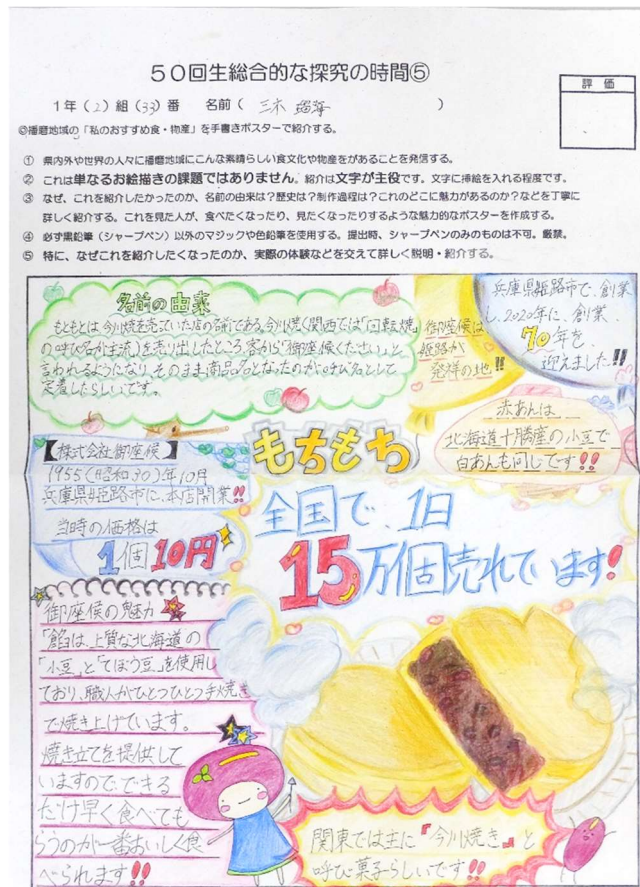 50回生総合的な探究の時間⑤
評価
1年(2)組(33)番 名前(三木)
◎播磨地域の「私のおすすめ食・物産」を手書きポスターで紹介する。
① 県内外や世界の人々に播磨地域にこんな素晴らしい食文化や物産をがあることを発信する。
② これは単なるお絵描きの課題ではありません。紹介は文字が主役です。文字に挿絵を入れる程度です。
③ なぜ、これを紹介したかったのか、名前の由来は?歴史は?制作過程は?これのどこに魅力があるのか?などを丁寧に
詳しく紹介する。これを見た人が、食べたくなったり、見たくなったりするような魅力的なポスターを作成する。
④ 必ず黒鉛筆(シャープペン)以外のマジックや色鉛筆を使用する。提出時、シャープペンのみのものは不可。厳禁。
⑤ 特に、なぜこれを紹介したくなったのか、実際の体験などを交えて詳しく説明・紹介する。
名前の由来
もともとは今川焼を売っていた店の名前である。今川焼く関西では「回転焼
の呼び名が主流)を売り出したところ客から「御座候ください」と
言われるようになり、そのまま商品名となったのが呼び名として
定着したらしいです。
御座候は
姫路が
発祥の地!!
兵庫県姫路市で、創業
し、2020年に、創業
70年を
迎えました!!
赤あんは
北海道十勝産の小豆で
白あんも同じです!!
【株式会社御座候】
1955(昭和30)年10月
兵庫県姫路市に、本店開業!!
当時の価格は
1個10円
もちもち
全国で、1日
15万個売れています!
御座候の魅力
「餡は、上質な北海道の
「小豆」と「てぼう豆」を使用し
ており、職人がひとつひとつ手焼き
で焼き上げています。
焼き立てを提供して
いますので、できる
だけ早く食べても
らうのが一番おいしく食
べられます!!
関東では主に『今川焼き』と
呼び菓子らしいです!!